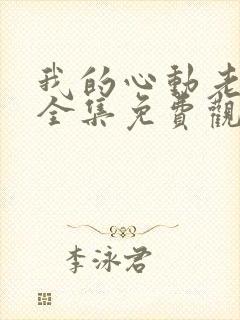 我的心動老
全集免費觀
李泳君